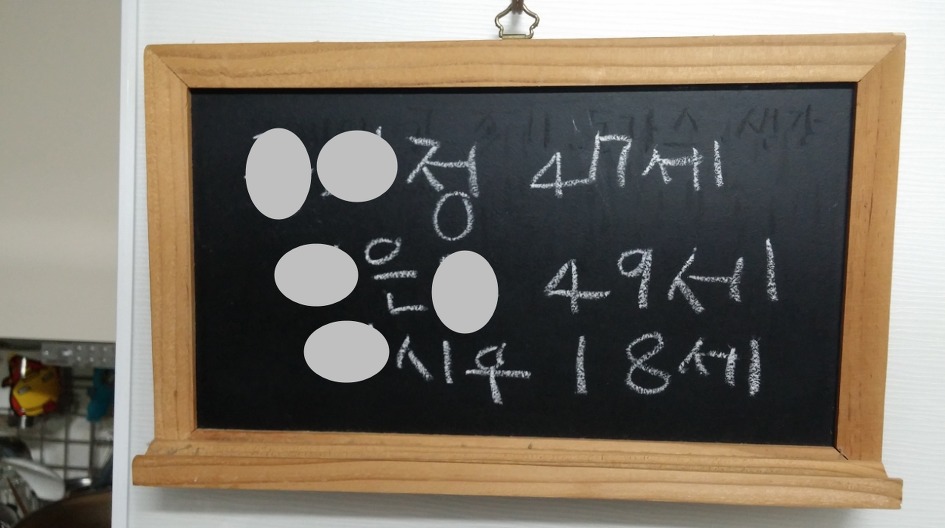 정 47세
은 49세
시우 18세